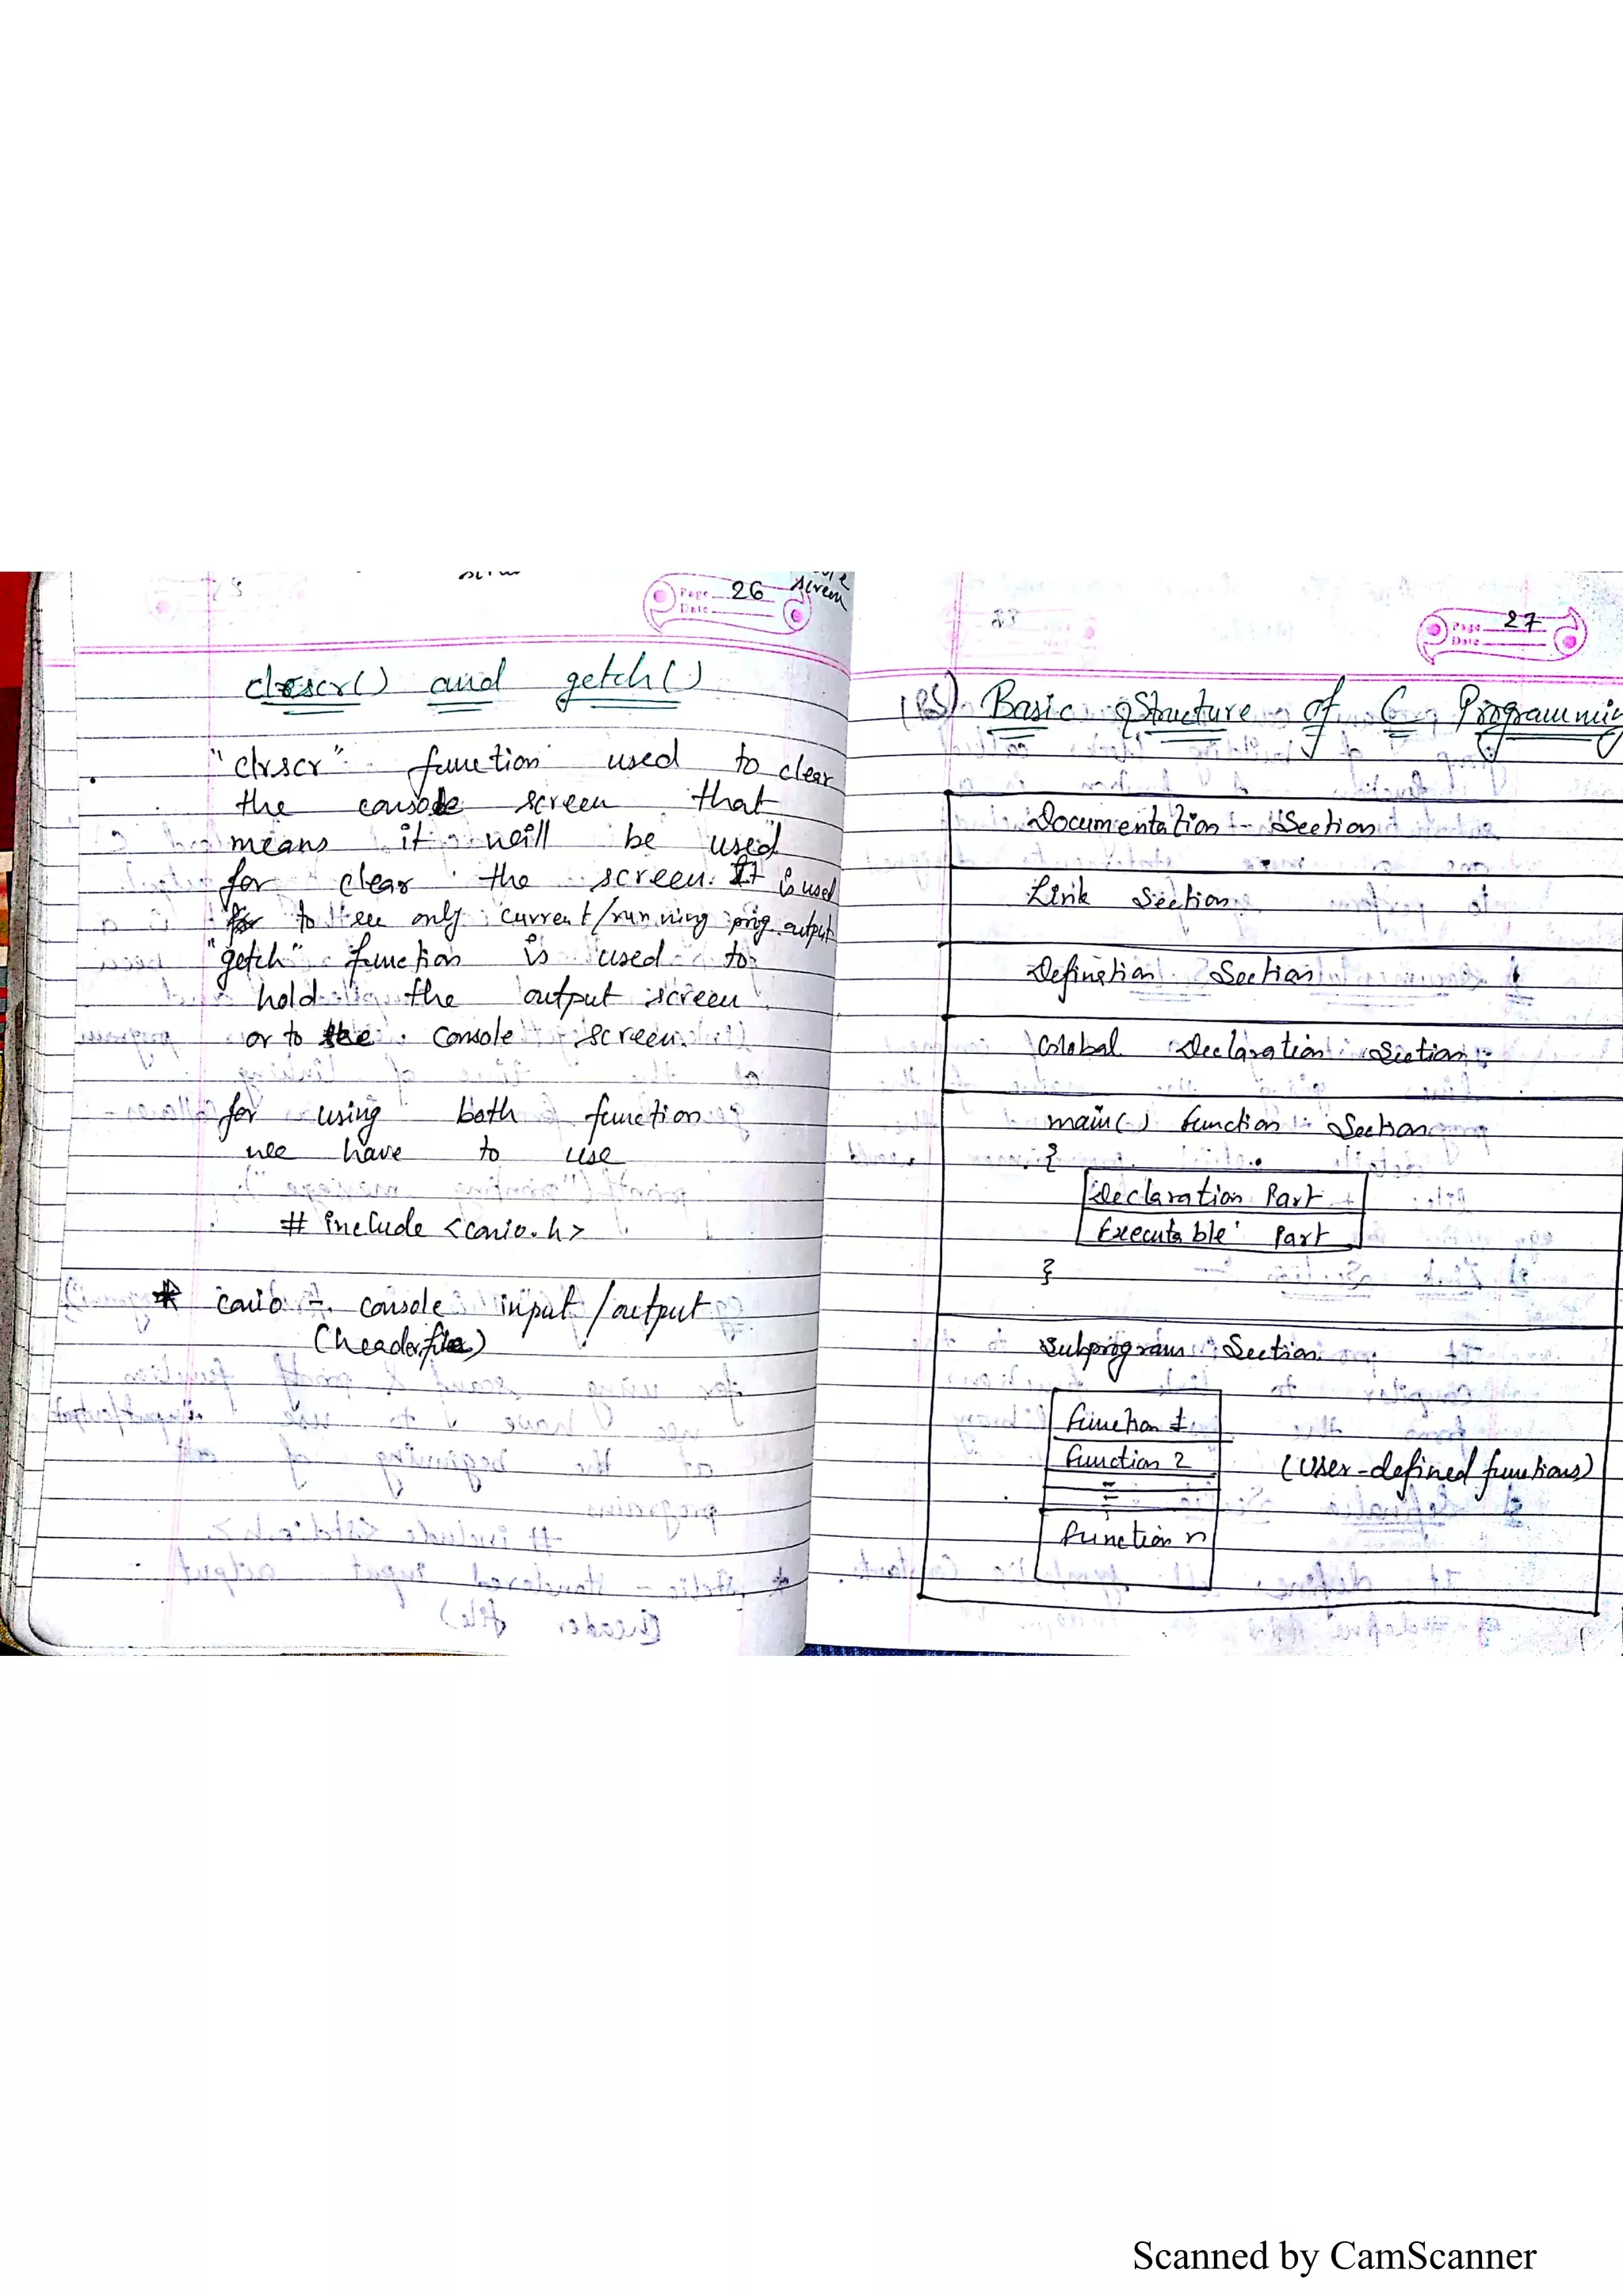 Page 26
screen
Date
clrscr() and getch()
"clrscr" function used to clear
the console screen that
means it will be used
for clear the screen. It is used
to see only current/running prog. output
"getch" function is used to
hold the output screen
or to see console screen.
for using both function
we have to use
# include <conio.h>
* conio - console input/output
(header file)
Page 27
Date
Basic Structure of C Programming
Documentation - Section
Link Section
Definetion Section
Global Declaration Section
main() function Section
{
Declaration Part
Executable Part
}
Subprogram Section
function 1
function 2
(User-defined functions)
function n
Scanned by CamScanner